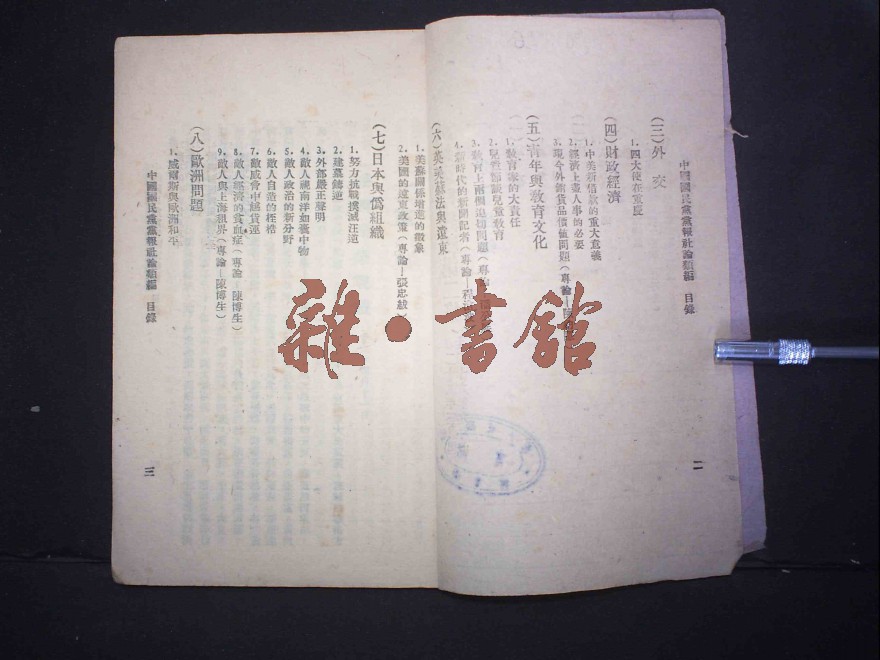 中國國民黨黨報社論類編　目錄
(三)外　交
1.四大使在重慶
(四)財政經濟
1.中美新借款的重大意義
2.經濟上盡人事的必要
3.現今外銷貨品價値問題(專論
(五)青年與敎育文化
1.敎育家的大責任
2.兒童節談兒童敎育
3.敎育上兩個迫切問題(專
4.新時代的新聞記者(專論
二
(六)英美蘇法與遠東
1.美蘇關係增進的徵象
2.美國的遠東政策(專論—張忠紱)
(七)日本與僞組織
1.努力抗戰撲滅汪逆
2.建墓鑄逆
3.外部嚴正聲明
4.敵人視南洋如囊中物
5.敵人政治的新分野
6.敵人自造的桎梏
7.敵威脅中越貨運
8.敵人經濟的貧血症(專論　陳博生)
9.敵人與上海租界(專論—陳博生)
(八)歐洲問題
1.威爾斯與歐洲和平
中國國民黨黨報社論類編　目錄
三
雜·書館